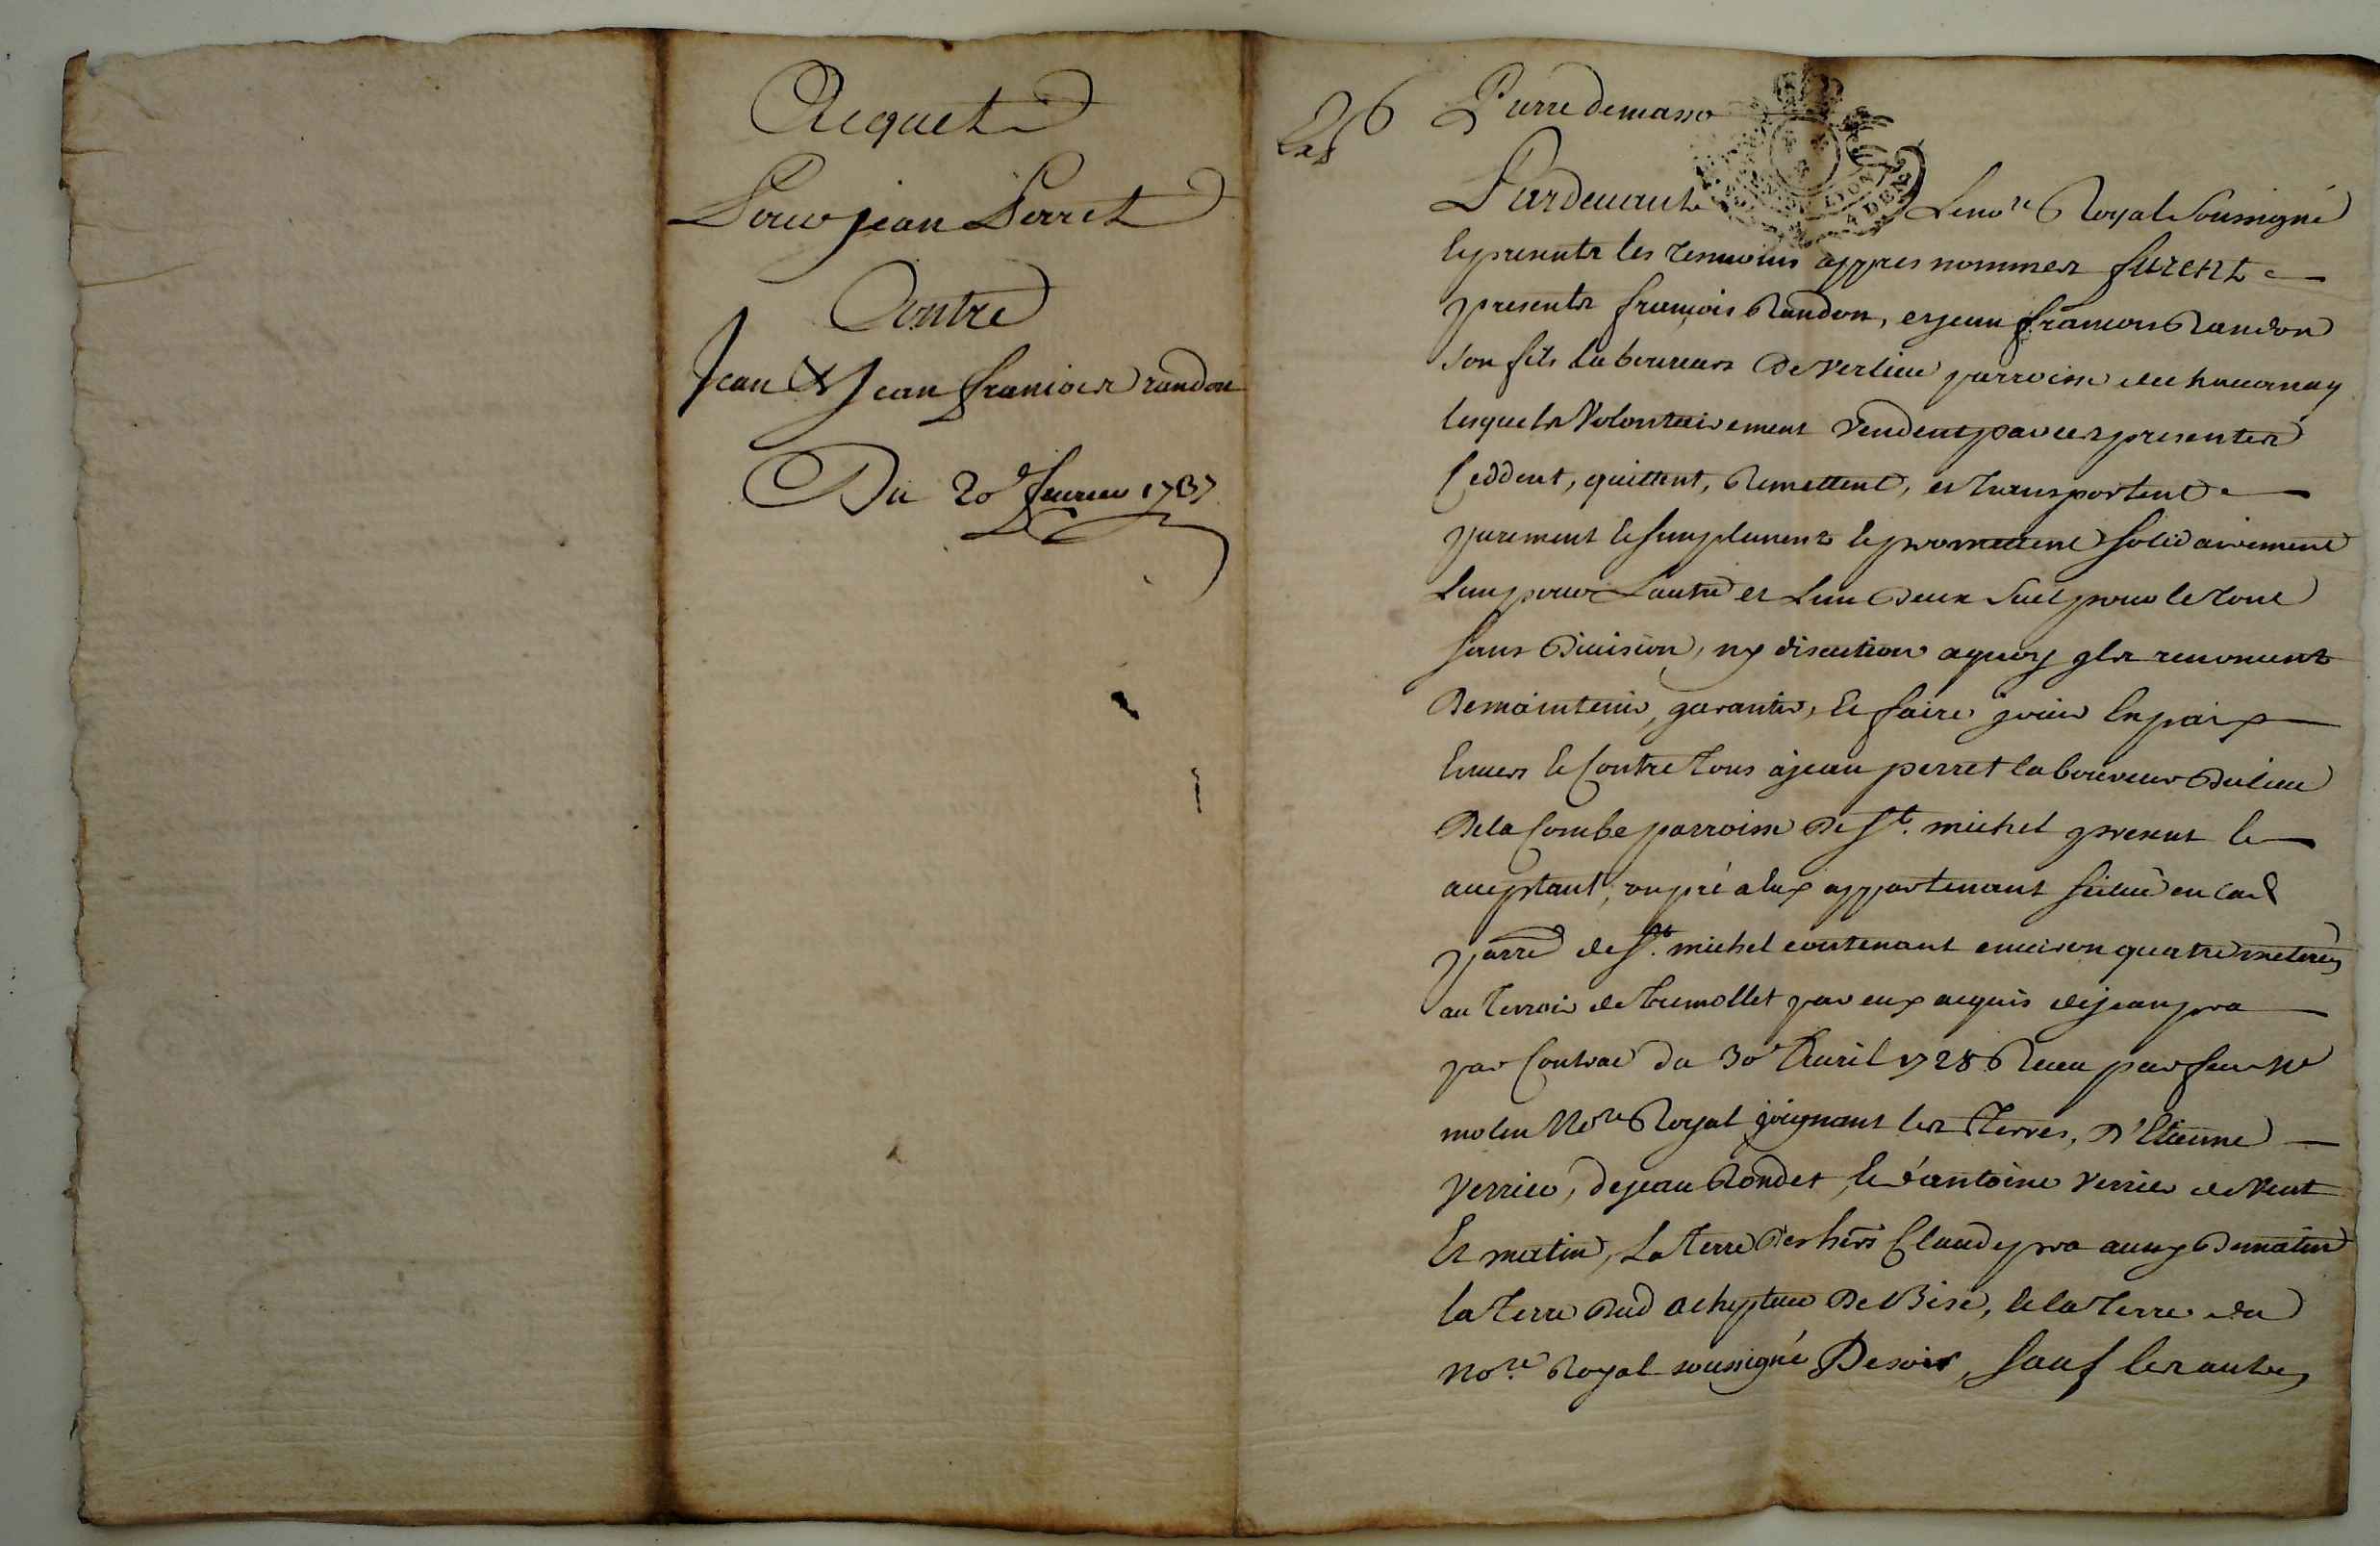 Acquet
Pour jean Perret
Contre
Jean & Jean françois randon
Du 20e feurier 1737
Pierre demasso
GEN DE LYON
Pardeuant Le nore Royal Soussigné
Et presents les tesmoins appres nommes furent
presents françois Randon, et jean françois Randon
Son fils laboureurs de verlieu parroisse de chauanay
lesquels Volontairement Vendent par ces presentes
Ceddent, quittent, Remettent, et transportent
purement et simplement et promettent solidairement
Lun pour Lautre et Lun deux seul pour le tout
sans Diuision, ny discution a quoy ils renoncent
De maintenir, garantir, et faire jouir En paix
Enuers et Contre tous a jean perret laboureur du lieu
De la Combe parroisse de St. michel present et
acceptant, un pré a eux appartenant scitué en lad
parre de St. michel contenant enuiron quatre meterés
au terroir de tremollet par eux acquis de jean pra
par Contrac du 30e Auril 1728 Receu par feu Me
molin Nore Royal joignant les terres, d'Etienne
Verrier, de jean Rondet, et d'antoine verrier de vent
Et matin, La terre des hers Claude pra aussy de matin
la terre dud achepteur De Bise, et la terre du
nore Royal soussigné De soir, sauf les autres